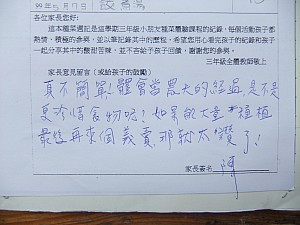 99年5月7日
各位家長您好:
這本種菜週記是這學期三年級小朋友種菜體驗課程的紀錄,每個活動孩子都
熱情、積極的參與,並以筆記錄其中的歷程,希望您用心看完孩子的紀錄和孩子
一起分享其中的酸甜苦辣,並不吝給予孩子回饋,謝謝您的參與。
三年級全體教師敬上
家長意見留言(或給孩子的鼓勵)
真不簡單!體會當農夫的經過是不是
更珍惜食物呢?如果能大量種植
最後再來個義賣那就太"讚"了!
家長簽名 陳